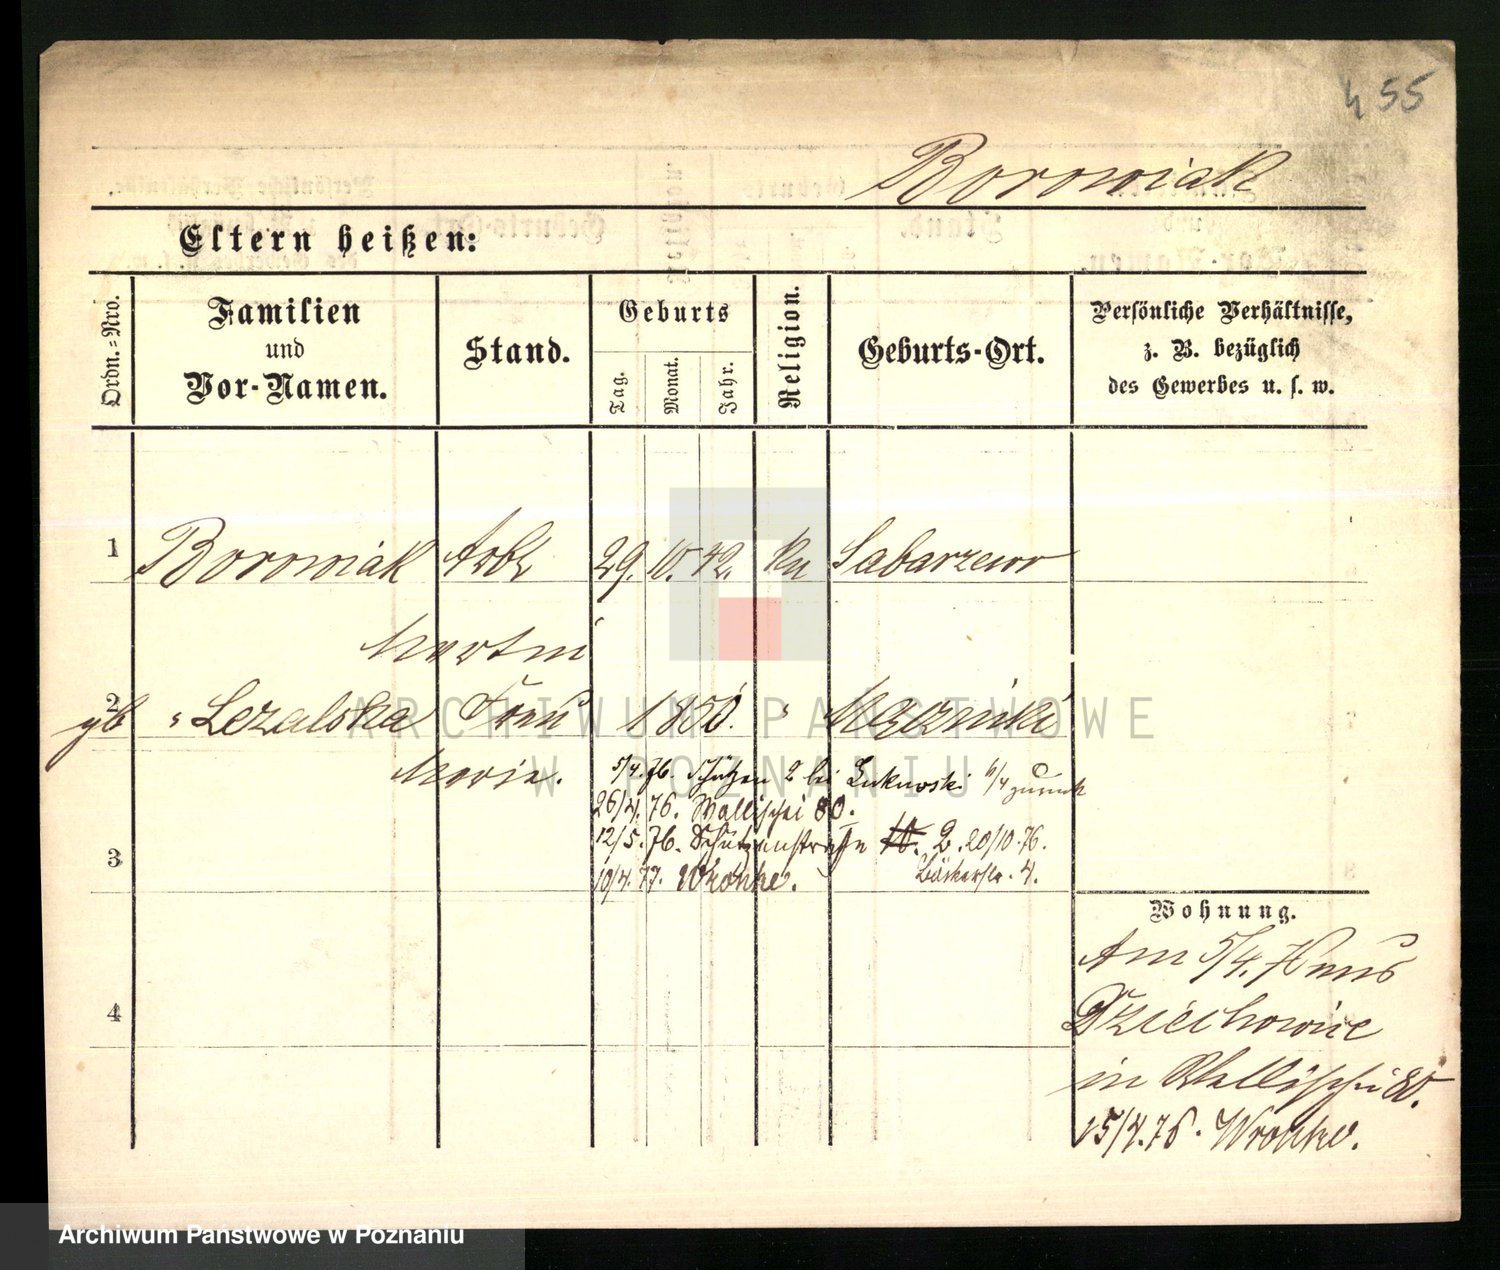 455
Borowiak
Eltern heißen:
Ordn.=Nro.
Familien
und
Vor-Namen.
Stand.
Geburts
Tag.
Monat.
Jahr.
Religion.
Geburts-Ort.
Persönliche Verhältnisse,
z. B. bezüglich
des Gewerbes u. s. w.
1 Borowiak Arbt 29. 10. 42. kn Sabarzewo
Martin
2 gb Lezalska Frau 1850. "
Marie.
5/4.76. Schützen 2 bei Lukowski 6/4 zurück
26/4.76. Wallischei 80.
12/5.76. Schützenstrasse 2. 20/10.76.
3 10/4.77. Wronke. Bäckerstr. 4.
4
Wohnung.
Am 5/4.76 aus
Dziechowice
in Wallischei 80.
15/4.76. Wronke.
ARCHIWUM PAŃSTWOWE
W POZNANIU
Archiwum Państwowe w Poznaniu